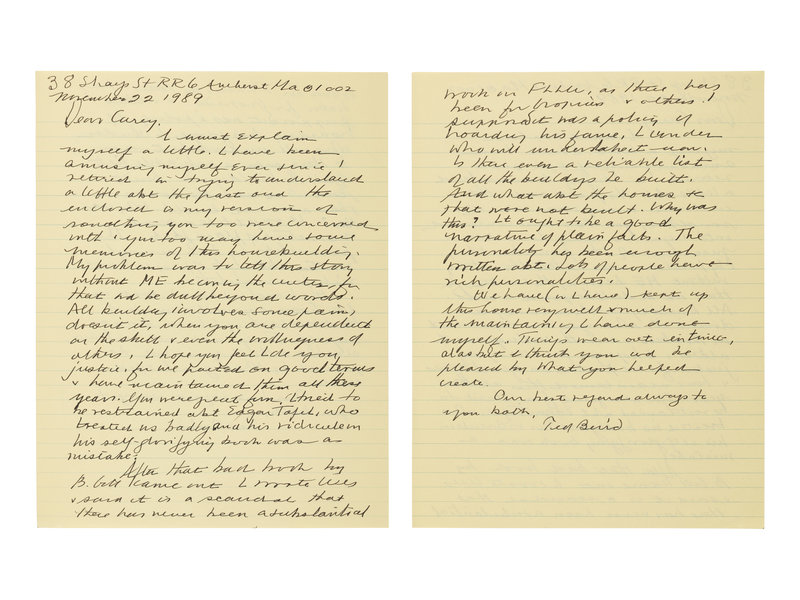 38 Shays St RR6 Amherst Ma 01002
November 22 1989
Dear Carey,
I must explain
myself a little. I have been
amusing myself ever since I
retired in trying to understand
a little abt the past and the
enclosed is my version of
something you too were concerned
with. You too may have some
memories of this housebuilding.
My problem was to tell this story
without ME becoming the center, for
that wd be dull beyond words.
All building involves some pain,
doesn't it, when you are dependent
on the skill & even the willingness of
others. I hope you feel I do you
justice, for we parted on good terms
& have maintained them all these
years. You were great fun. I tried to
be restrained abt Edgar Tafel, who
treated us badly and his ridicule in
his self-glorifying book was a
mistake.
After that bad book by
B. Gill came out I wrote
& said it is a scandal that
there has never been a substantial
work on FLLW, as there has
been for & others. I
suppose it was a policy of
hoarding his fame. I wonder
who will undertake it now.
Is there even a reliable list
of all the buildings he built.
And what abt the houses
that were not built. Why was
this? It ought to be a good
narrative of plain facts. The
personality has been enough
written abt. Lots of people have
rich personalities.
We have (or I have) kept up
this house very well & much of
the maintaining I have done
myself. Things wear out in time,
alas but I think you wd be
pleased by what you helped
create.
Our best regard always to
you both,
Ted Baird